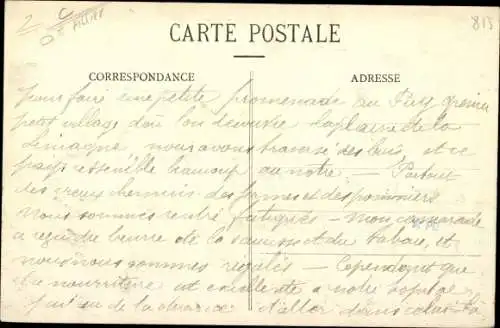 2
813
CARTE POSTALE
CORRESPONDANCE
ADRESSE
pour faire une petite promenade au Puy
petit village d'où l'on la plaine de la
Limagne nous avons traversé des bois et ce
pays ressemble beaucoup au notre. — Partout
des creux chemins des fermes et des pommiers
Nous sommes rentré fatigués — Mon camarade
a reçu du beurre de la et du tabac, et
nous nous sommes régalés — Cependant que
la nourriture est à notre hopital
de la d'aller dans celui-là